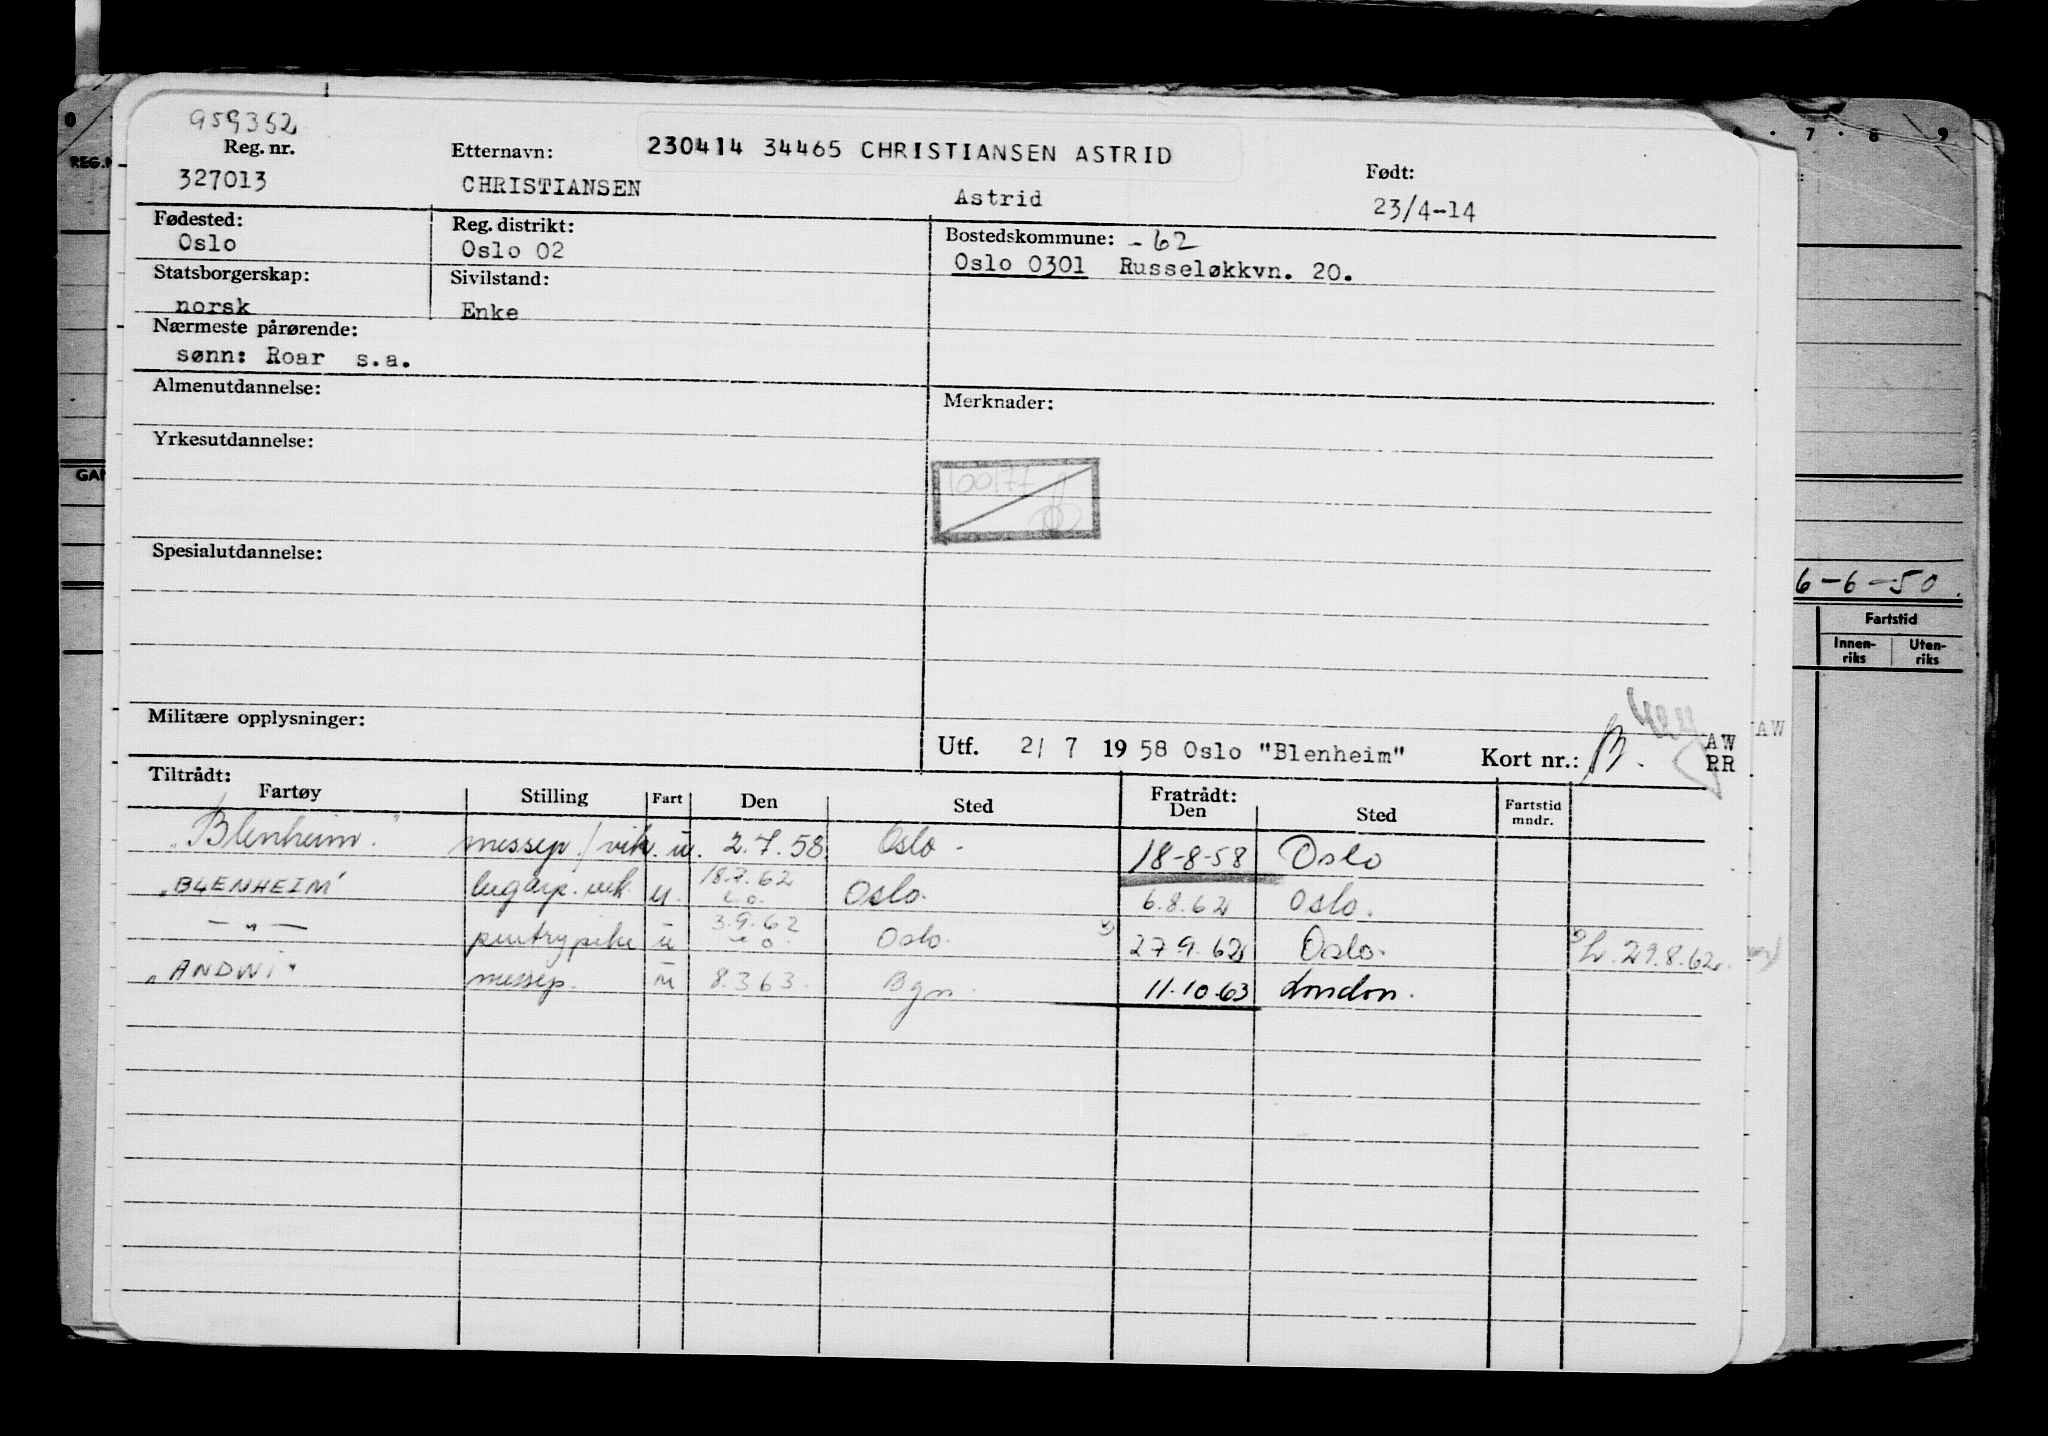 959362
Reg. nr.
327013
Etternavn:
CHRISTIANSEN
230414 34465 CHRISTIANSEN ASTRID
Astrid
Født:
23/4-14
Fødested:
Oslo
Reg. distrikt:
Oslo 02
Bostedskommune: -62
Oslo 0301 Russeløkkvn. 20.
Statsborgerskap:
norsk
Sivilstand:
Enke
Nærmeste pårørende:
sønn: Roar s.a.
Almenutdannelse:
Merknader:
Yrkesutdannelse:
Spesialutdannelse:
Militære opplysninger:
Utf. 2/ 7 1958 Oslo "Blenheim" Kort nr.: B.
AW
RR
AW
Tiltrådt:
Fartøy Stilling Fart Den Sted Fratrådt: Den Sted Fartstid mndr.
"Blenheim" messep./vik. u. 2.7.58. Oslo. 18-8-58 Oslo
"BLENHEIM" lugarp. vik. u. 18.7.62 Oslo. 6.8.62 Oslo.
— " — pantrypike u 3.9.62 Oslo. 27.9.62 Oslo. 29.8.62
"ANDWI" messep. u 8.3.63. Bgn. 11.10.63 London.
0
REG.N
GAN
7 · 8 · 9
6-6-50.
Fartstid
Innen-riks Uten-riks